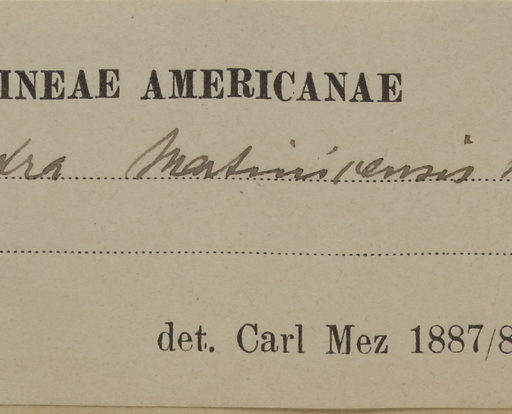 INEAE AMERICANAE
dra Martinicensis
det. Carl Mez 1887/8